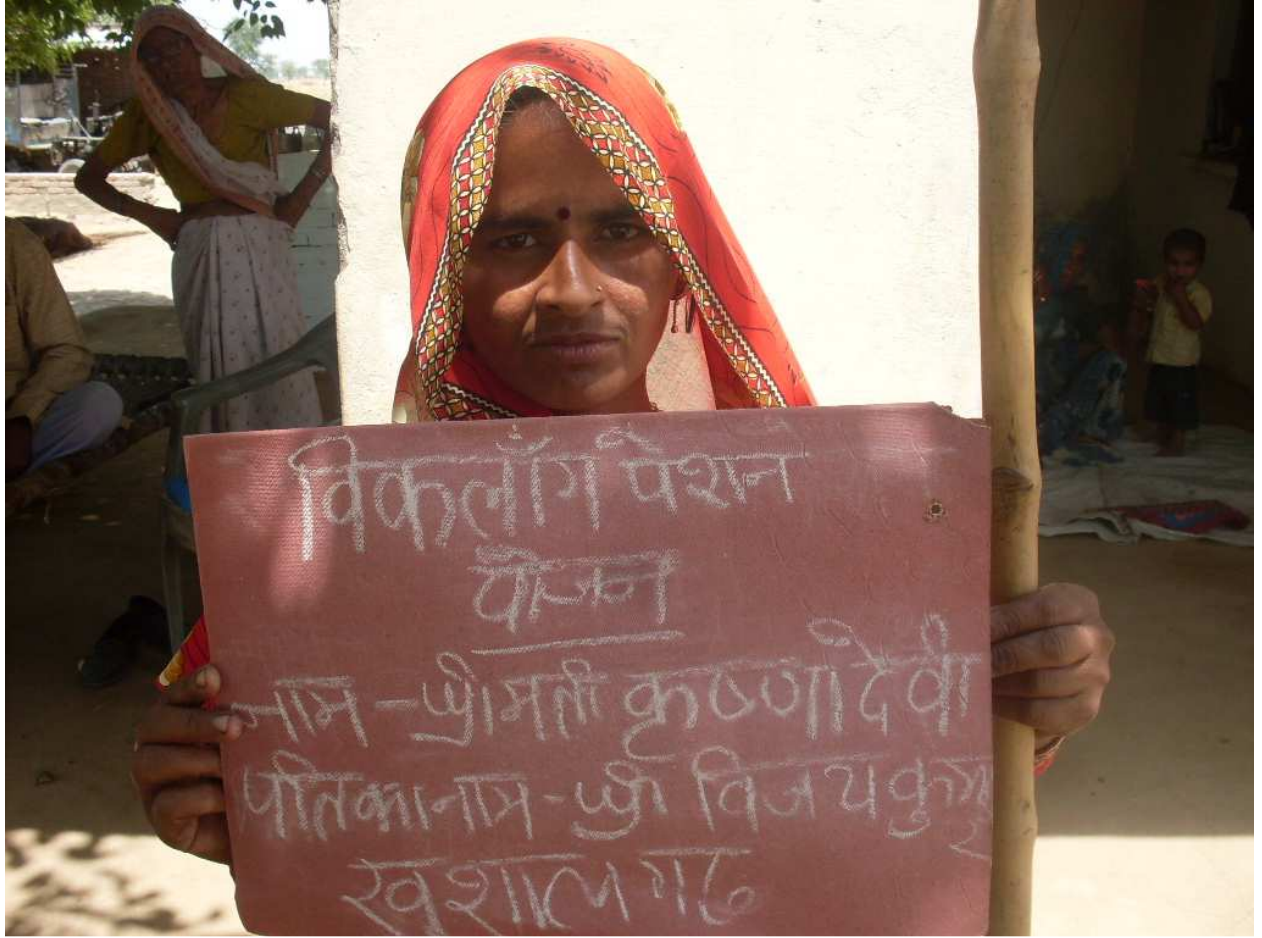 विकलाँग पेंशन
योजन
नाम - श्रीमती कृष्णा देवी
पति का नाम - श्री विजय कुमार
खुशालगढ